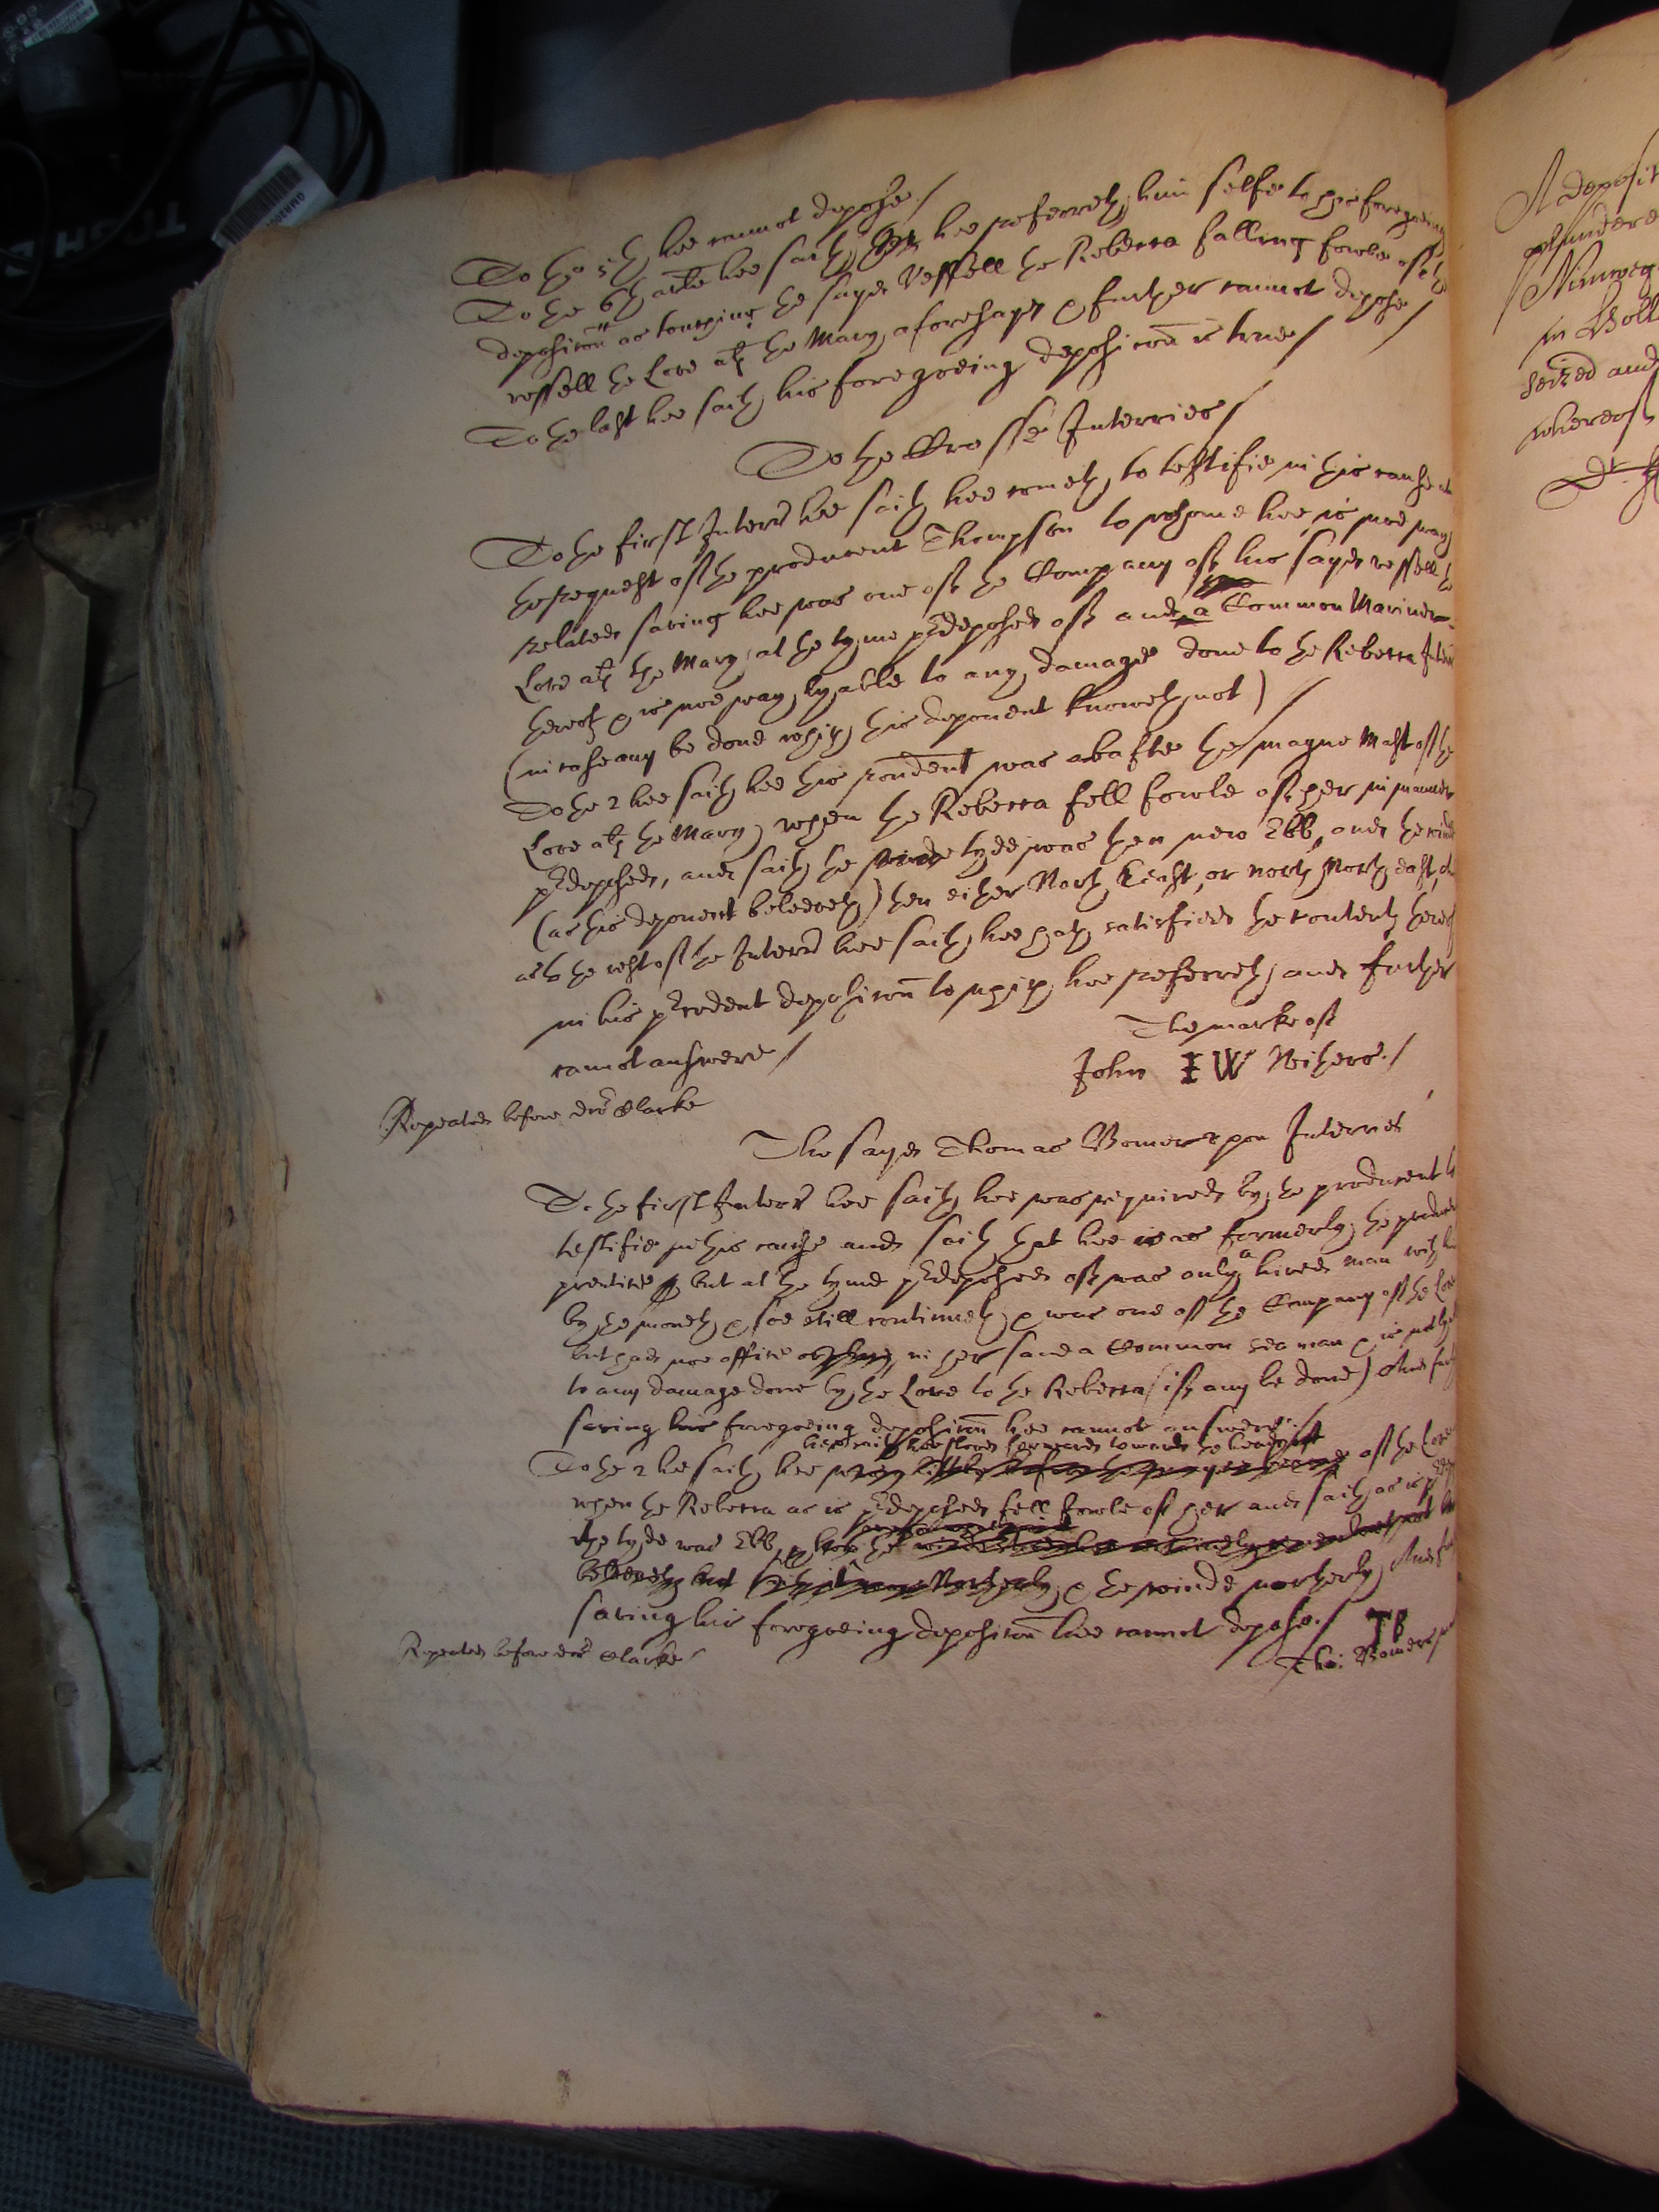 To the 5th hee cannot depose./
To the 6th arle hee saith, hee referreth him selfe to his foregoeing
deposicon as touching the sayd Vessell the Rebecca falling fowle of the
vessell the Love als the Mary aforesayd & further cannot depose/
To the last hee saith his foregoeing deposicon is true/
To the Crosse Interries/
To the first Interr hee saith hee cometh to testifie in this cause at
the request of the producent Thompson to whome hee is noe way
related saving hee was one of the Company of his sayd vessell the
Love als the Mary at the tyme predeposed of and a Common Mariner
thereof & is noe way lyable to any damage done to the Rebecca
(in case any be done which this deponent knoweth not)/
To the 2 hee saith hee this rondent was abafte the mayne Mast of the
Love als the Mary when the Rebecca fell fowle of her in manner
predeposed, and saith the tyde was then new Ebb, and the winde
(as this deponent beleeveth) then either North East, or North North East,
as to the rest of the Interr hee saith hee hath satisfied the contents thereof
in his precedent deposicon to which hee referreth, and further
cannot answere/
The marke of
John IW Withers./
Repeated before dor Clarke
The sayd Thomas Bomer upon Interries
To the first Interr hee saith hee was required by the producent to
testifie in this cause and saith that hee was formerly the producents
prentice but at the tyme predeposed of was only a hired man with him
by the moneth & soe still continueth, & was one of the Company of the Love
but had noe office in her save a Common seaman & is not lyable
to any damage done by the Love to the Rebecca (if any be done) And further
saving his foregoeing deposicon hee cannot answere./
hee stood forwards towards the head
To the 2 hee saith, hee of the Love
when the Rebecca as is predeposed fell fowle of her and saith as is
the tyde was Ebb,
beleeveth but & the winde northerly, And further
saving his foregoeing deposicon hee cannot depose./ TB
Repeated before dor Clarke
Tho: Bomer
A deposit
in Holl
seized and
whereof
Dr